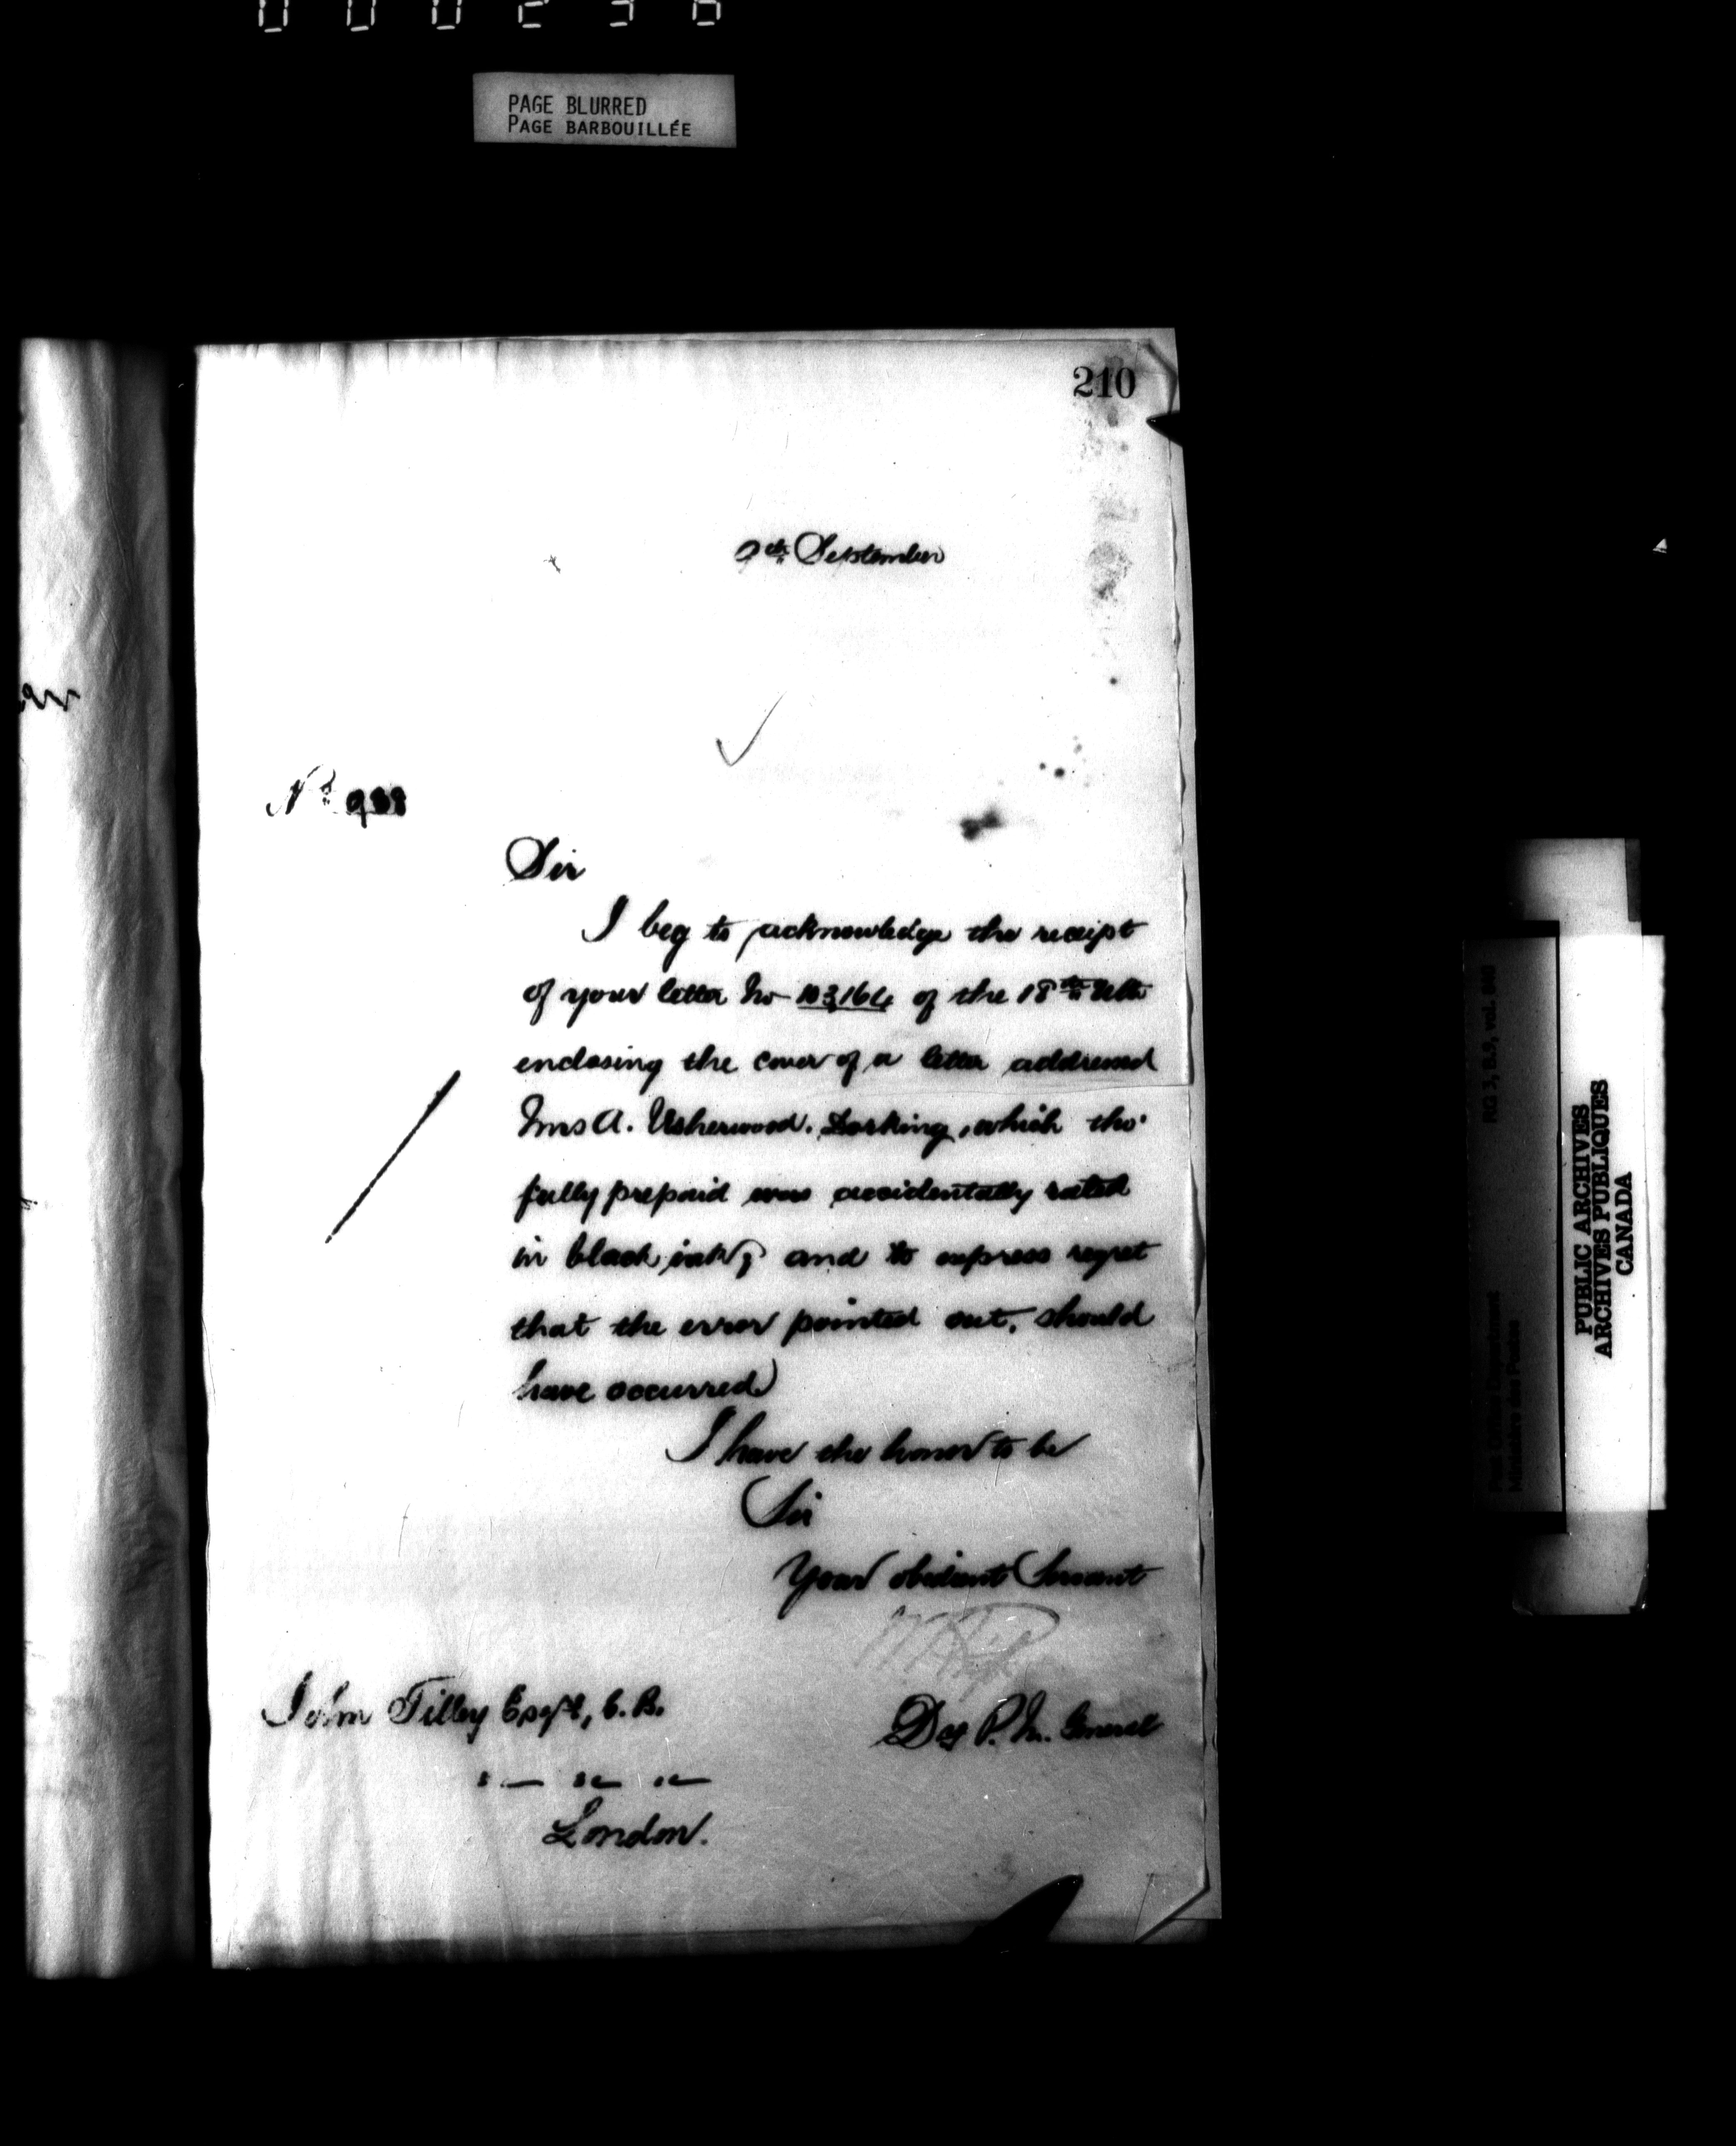 PAGE BLURRED
PAGE BARBOUILLÉE
210
9th September
No 938
Sir
I beg to acknowledge the receipt
of your letter No 103164 of the 18th Ulto
enclosing the cover of a letter addressed
Mrs A. Usherwood. Dorking, which tho'
fully prepaid was accidentally rated
in black ink, and to express regret
that the error pointed out, should
have occurred
I have the honor to be
Sir
Your obedient Servant
John Tilley Esqre, C.B.
Dep P. M. General
London.
RG 3, B.9, vol.
Post Office Department
Ministère des Postes
PUBLIC ARCHIVES
ARCHIVES PUBLIQUES
CANADA